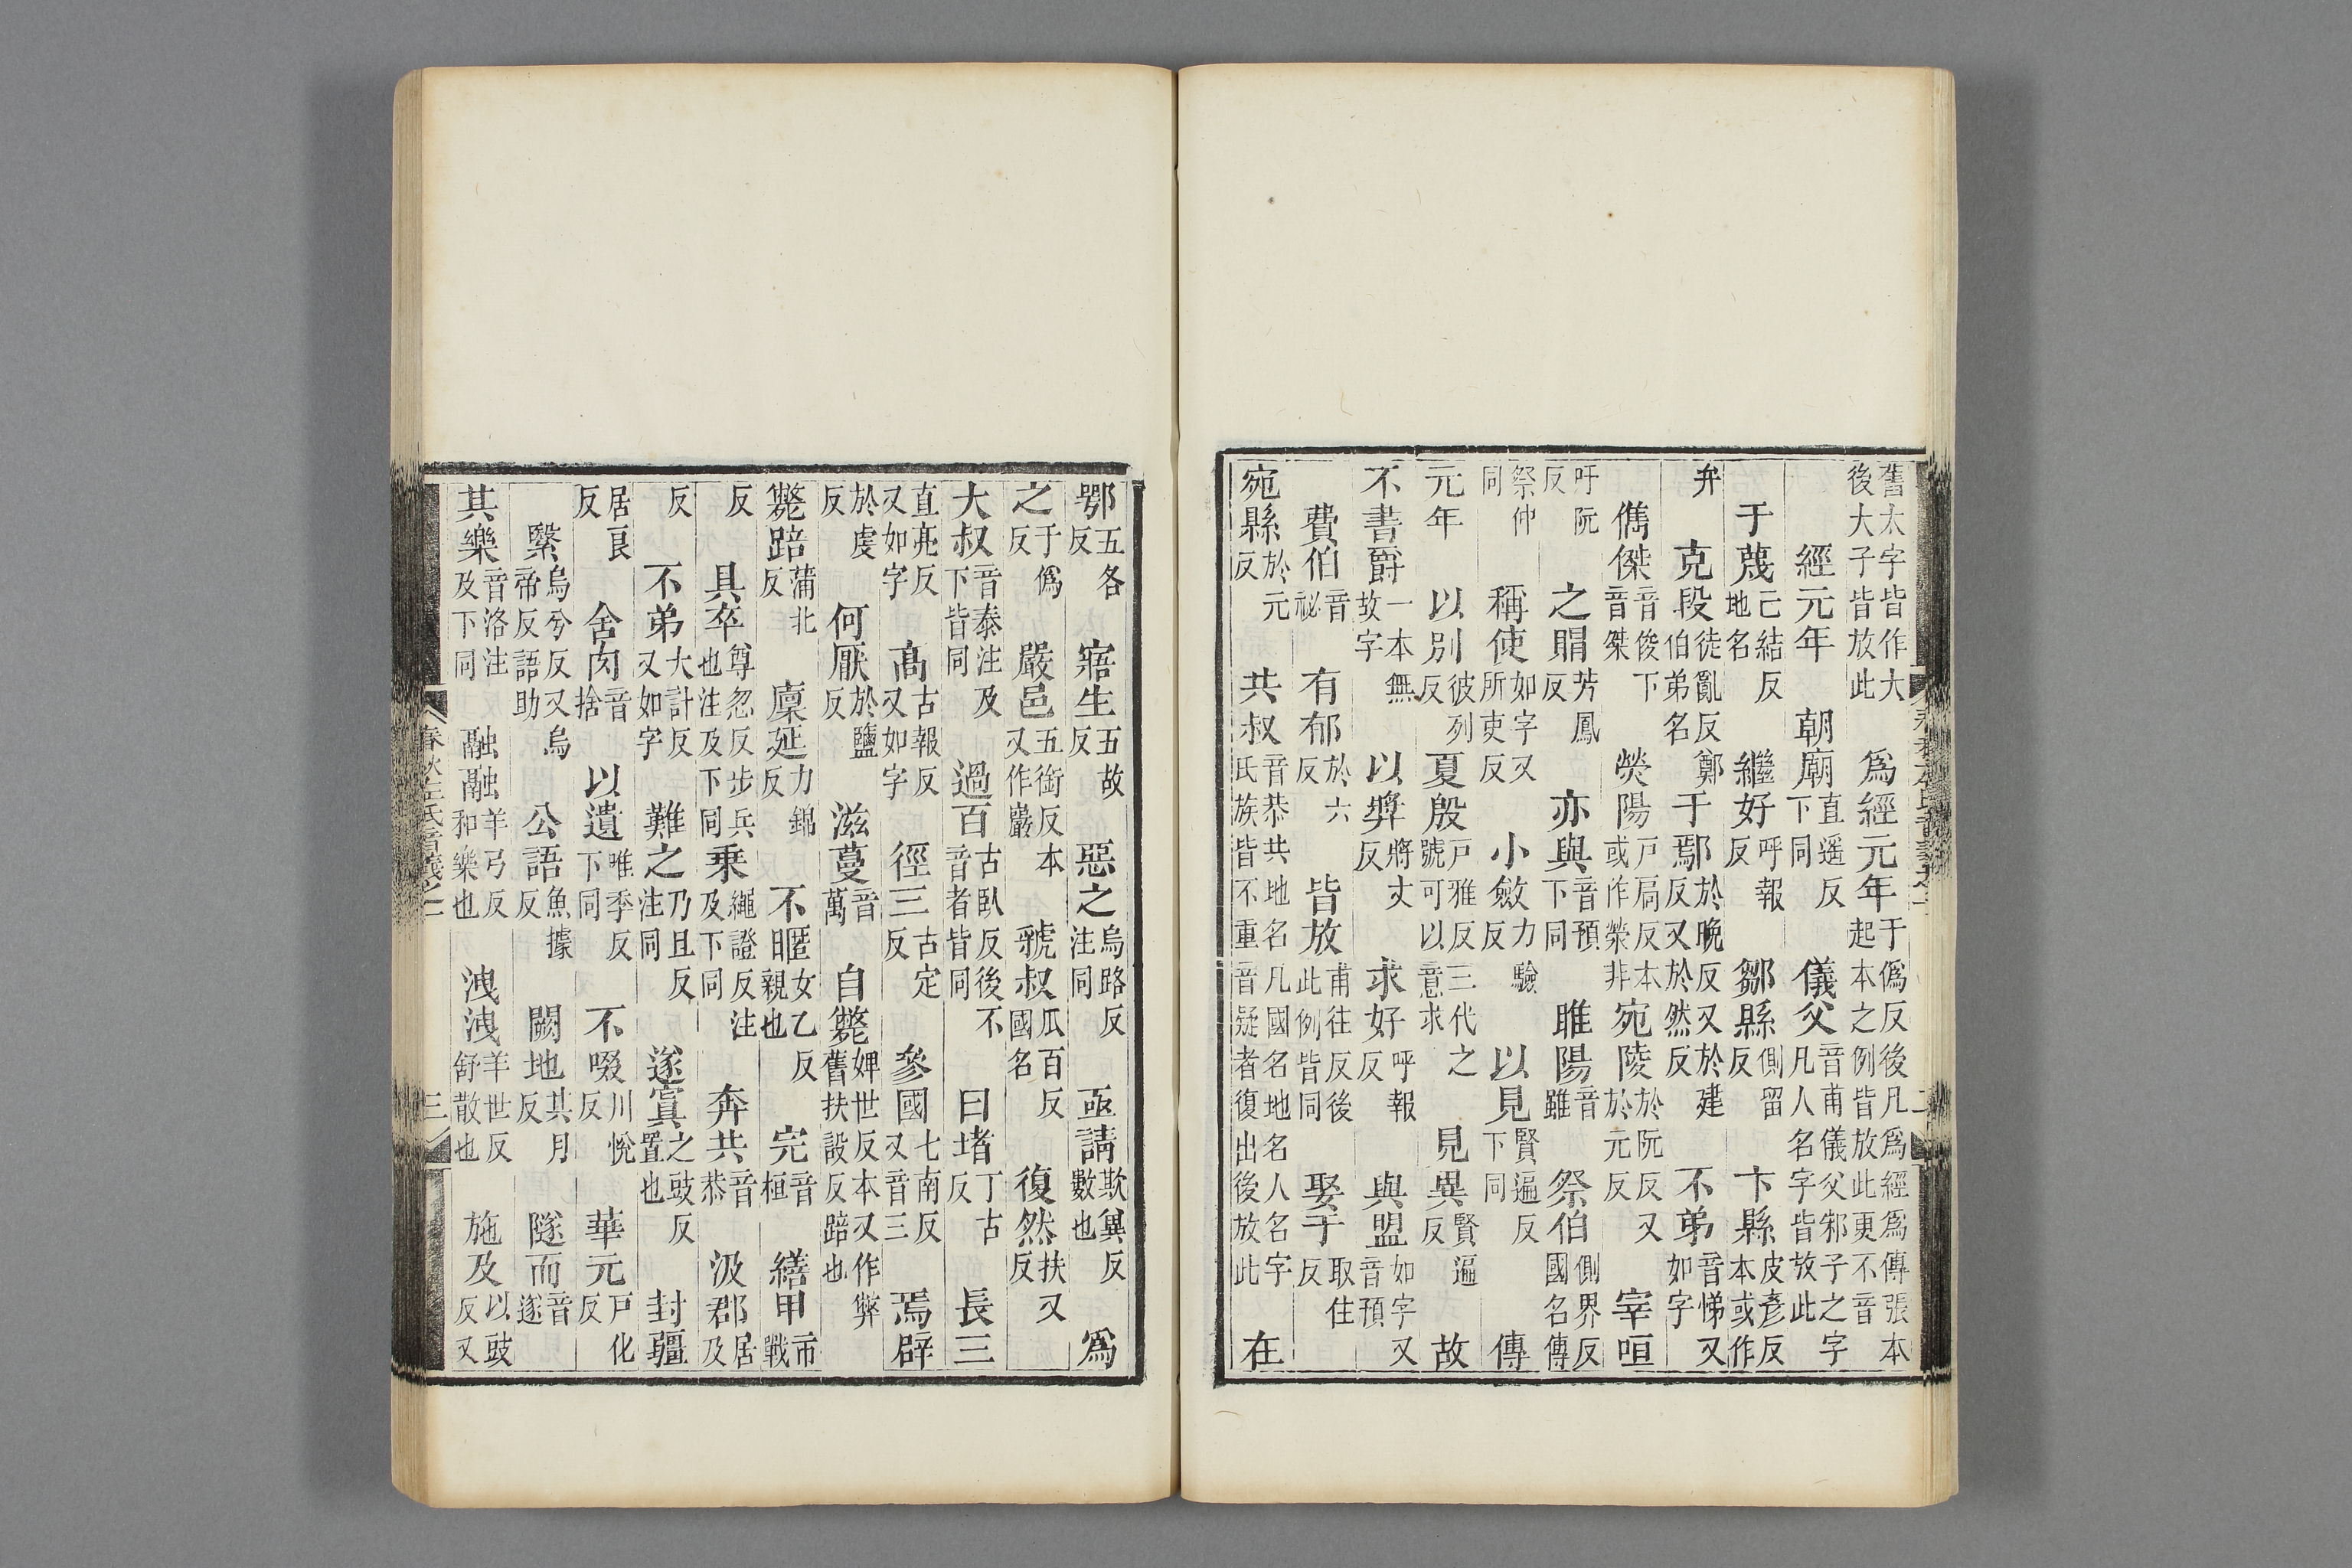 舊太字皆作大後大子皆放此 爲經元年于僞反後凡爲經爲傳張本起本之例皆放此更不音
經元年 朝廟直遥反下同 儀父音甫儀父邾子之字凡人名字皆放此
于蔑亡結反地名 繼好呼報反 鄒縣側留反 卞縣皮彥反本或作
弁 克段徒亂反鄭伯弟名 于鄢於晚反又於建反又於然反 不弟音悌又如字
儁傑音俊下音桀 熒陽戸扃反本或作榮非 宛陵於阮反又於元反 宰咺
吁阮反 之賵芳鳳反 亦與音預下同 睢陽音雖 祭伯側界反國名傳
祭仲同 稱使如字又所吏反 小斂力驗反 以見賢遍反下同 傳
元年 以別彼列反 夏殷戸雅反三代之號可以意求 見異賢遍反 故
不書爵一本無故字 以奨將丈反 求好呼報反 與盟如字又音預
費伯音祕 有郁於六反 皆放甫往反後此例皆同 娶于取住反
宛縣於元反 共叔音恭共地名凡國名地名人名字氏族皆不重音疑者復出後放此 在
鄂五各反 寤生五故反 惡之烏路反注同 亟請欺冀反數也 爲
之于僞反 嚴邑五銜反本又作巖 虢叔瓜百反國名 復然扶又反
大叔音泰注及下皆同 過百古臥反後不音者皆同 曰堵丁古反 長三
直亮反又如字 高古報反又如字 徑三古定反 參國七南反又音三 焉辟
於虔反 何厭於鹽反 滋蔓音萬 自斃婢世反本又作弊舊扶設反踣也
斃踣蒲北反 廩延力錦反 不暱女乙反親也 完音桓 繕甲市戰
反 具卒尊忽反步兵也注及下同 乗繩證反注及下同 奔共音恭 汲郡居及
反 不弟大計反又如字 難之乃旦反注同 遂寘之豉反置也 封疆
居良反 舍肉音捨 以遺唯季反下同 不啜川悅反 華元戸化反
繄烏兮反又烏帝反語助 公語魚據反 闕地其月反 隧而音遂
其樂音洛注及下同 融融羊弓反和樂也 洩洩羊世反舒散也 施及以豉反又
春秋左氏音義之一
三